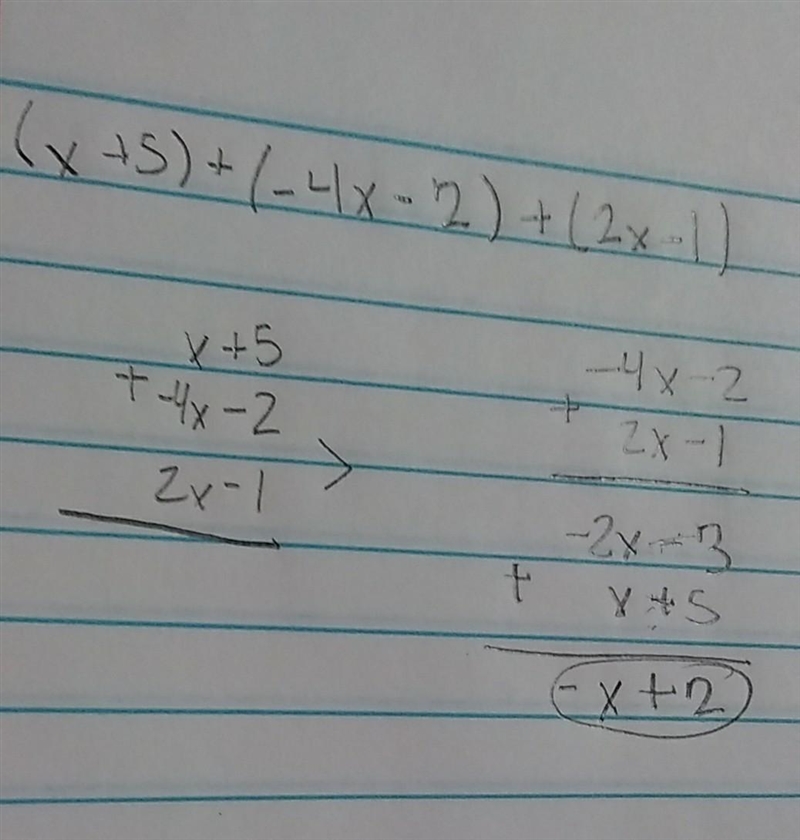 (x+5)+(-4x-2)+(2x-1)
x+5
+ -4x-2
2x-1
>
-4x-2
+ 2x-1
-2x-3
+ x+5
-x+2